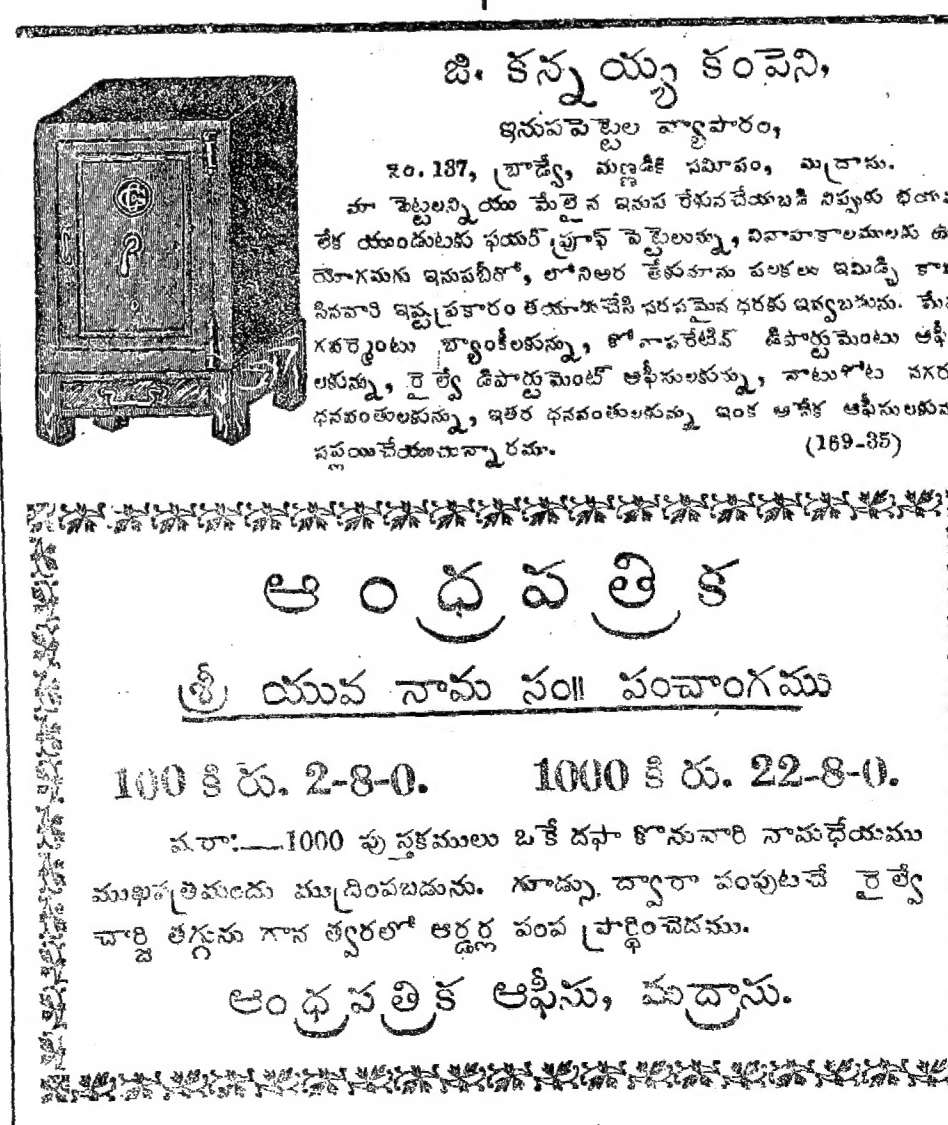 జి. కన్నయ్య కంపెని,
ఇనుపపెట్టెల వ్యాపారం,
నం. 137, బ్రాడ్వే, మణ్ణడికి సమీపం, మద్రాసు.
మా పెట్టలన్నియు మేలైన ఇనుప రేకునచేయబడి నిప్పుకు భయ
లేక యుండుటకు ఫయర్ ప్రూఫ్ పెట్టెలున్ను, వివాహకాలములకు ఉ
యోగమగు ఇనుపబీరో, లోనిఅర తేకుమాను పలకలు ఇమిడ్చి కా
సినవారి ఇష్టప్రకారం తయారుచేసి సరసమైన ధరకు ఇవ్వబడును. మే
గవర్మెంటు బ్యాంకీలకున్ను, కోఆపరేటివ్ డిపార్టుమెంటు ఆఫీ
లకున్ను, రైల్వే డిపార్టుమెంట్ ఆఫీసులకున్ను, నాటుకోట నగర
ధనవంతులకున్ను, ఇతర ధనవంతులకున్ను ఇంక అనేక ఆఫీసులకున
సప్లయిచేయుచున్నారము. (169-35)
ఆంధ్రపత్రిక
శ్రీ యువ నామ సం॥ పంచాంగము
100 కి రు. 2-8-0. 1000 కి రు. 22-8-0.
షరా:—1000 పుస్తకములు ఒకే దఫా కొనువారి నామధేయము
ముఖపత్రిమందు ముద్రింపబడును. గూడ్సు ద్వారా పంపుటచే రైల్వే
చార్జి తగ్గును గాన త్వరలో ఆర్డర్ల పంప ప్రార్థించెదము.
ఆంధ్రపత్రిక ఆఫీసు, మద్రాసు.